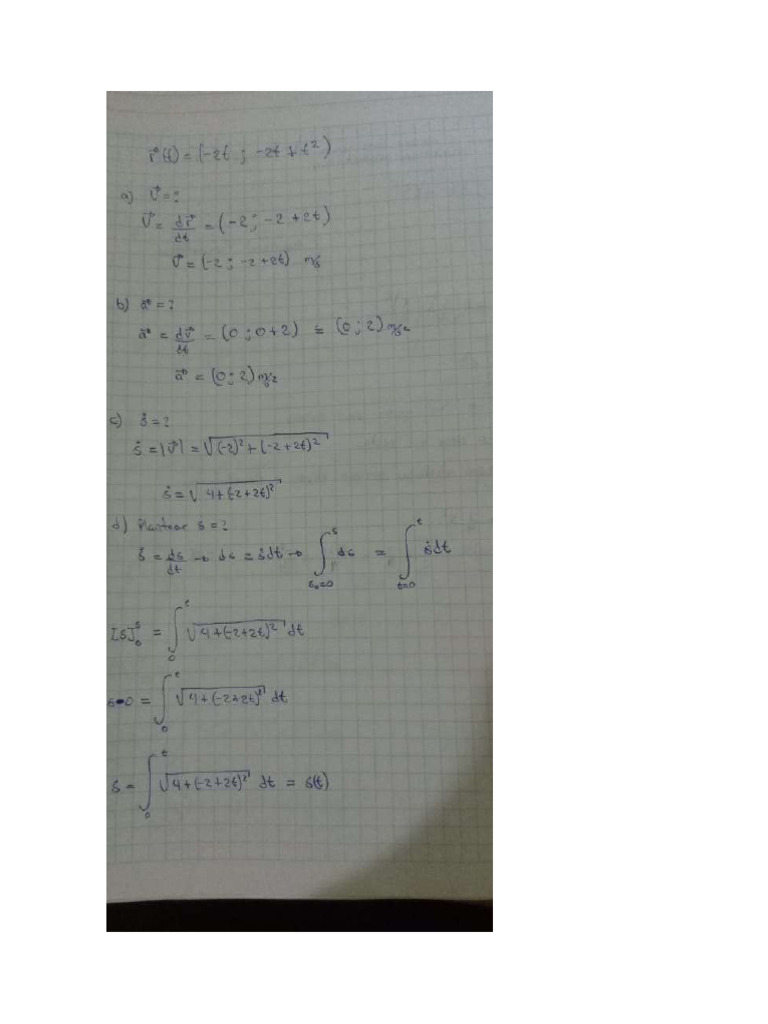 r⃗(t) = (-2t ; -2t + t²)
a) V⃗ = ?
V⃗ = dr⃗/dt = (-2 ; -2 + 2t)
V⃗ = (-2 ; -2 + 2t) m/s
b) a⃗ = ?
a⃗ = dv⃗/dt = (0 ; 0+2) = (0 ; 2) m/s²
a⃗ = (0 ; 2) m/s²
c) ṡ = ?
ṡ = |V⃗| = √((-2)² + (-2 + 2t)²)
ṡ = √(4 + (-2 + 2t)²)
d) Plantear s = ?
ṡ = ds/dt → ds = ṡdt → ∫_{s₀=0}^{s} ds = ∫_{t=0}^{t} ṡdt
[s]₀ˢ = ∫₀ᵗ √(4 + (-2+2t)²) dt
s-0 = ∫₀ᵗ √(4 + (-2+2t)²) dt
s = ∫₀ᵗ √(4 + (-2+2t)²) dt = s(t)